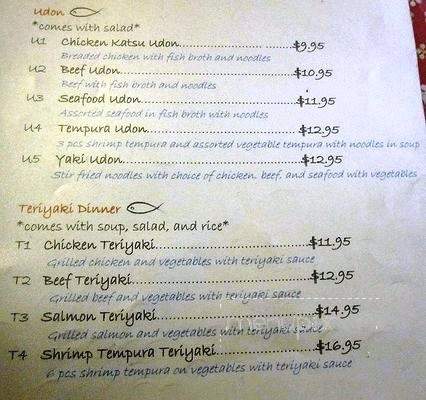 Udon
*comes with salad*
U1 Chicken Katsu Udon..........................$9.95
Breaded chicken with fish broth and noodles
U2 Beef Udon.......................................$10.95
Beef with fish broth and noodles
U3 Seafood Udon.................................$11.95
Assorted seafood in fish broth with noodles
U4 Tempura Udon................................$12.95
3 pcs shrimp tempura and assorted vegetable tempura with noodles in soup
U5 Yaki Udon......................................$12.95
Stir fried noodles with choice of chicken, beef, and seafood with vegetables
Teriyaki Dinner
*comes with soup, salad, and rice*
T1 Chicken Teriyaki...............................$11.95
Grilled chicken and vegetables with teriyaki sauce
T2 Beef Teriyaki....................................$12.95
Grilled beef and vegetables with teriyaki sauce
T3 Salmon Teriyaki...............................$14.95
Grilled salmon and vegetables with teriyaki sauce
T4 Shrimp Tempura Teriyaki....................$16.95
6 pcs shrimp tempura on vegetables with teriyaki sauce